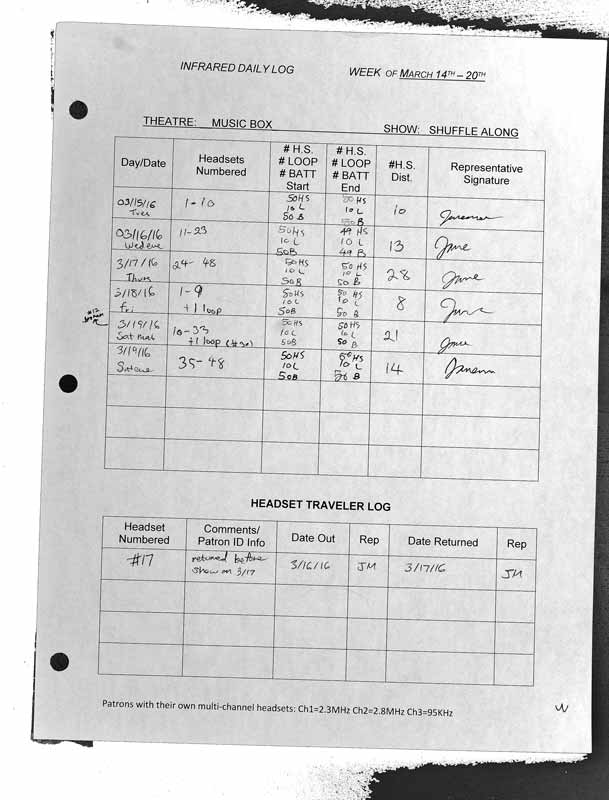 INFRARED DAILY LOG WEEK OF MARCH 14TH – 20TH
THEATRE: MUSIC BOX SHOW: SHUFFLE ALONG
Day/Date Headsets Numbered # H.S. # LOOP # BATT Start # H.S. # LOOP # BATT End #H.S. Dist. Representative Signature
03/15/16 Tues 1-10 50HS 10 L 50 B 50 HS 10 L 50B 10
03/16/16 11-23 50HS 10 L 50B 49 HS 10 L 49 B 13
3/17/16 Thurs 24-48 50HS 10 L 50B 50 HS 10 L 50 B 28
3/18/16 Fri 1-9 +1 loop 50HS 10L 50B 50 HS 10 L 50 B 8
3/19/16 Sat Mat 10-33 +1 loop 50HS 10L 50B 50HS 10 L 50 B 21
3/19/16 35-48 50HS 10L 50B 50HS 10 L 50 B 14
HEADSET TRAVELER LOG
Headset Numbered Comments/ Patron ID Info Date Out Rep Date Returned Rep
#17 returned before show on 3/17 3/16/16 JM 3/17/16 JM
Patrons with their own multi-channel headsets: Ch1=2.3MHz Ch2=2.8MHz Ch3=95KHz